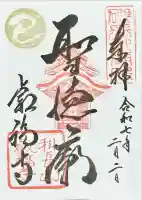 奉拝
令和七年
二月二日
聖徳廟
叡福寺